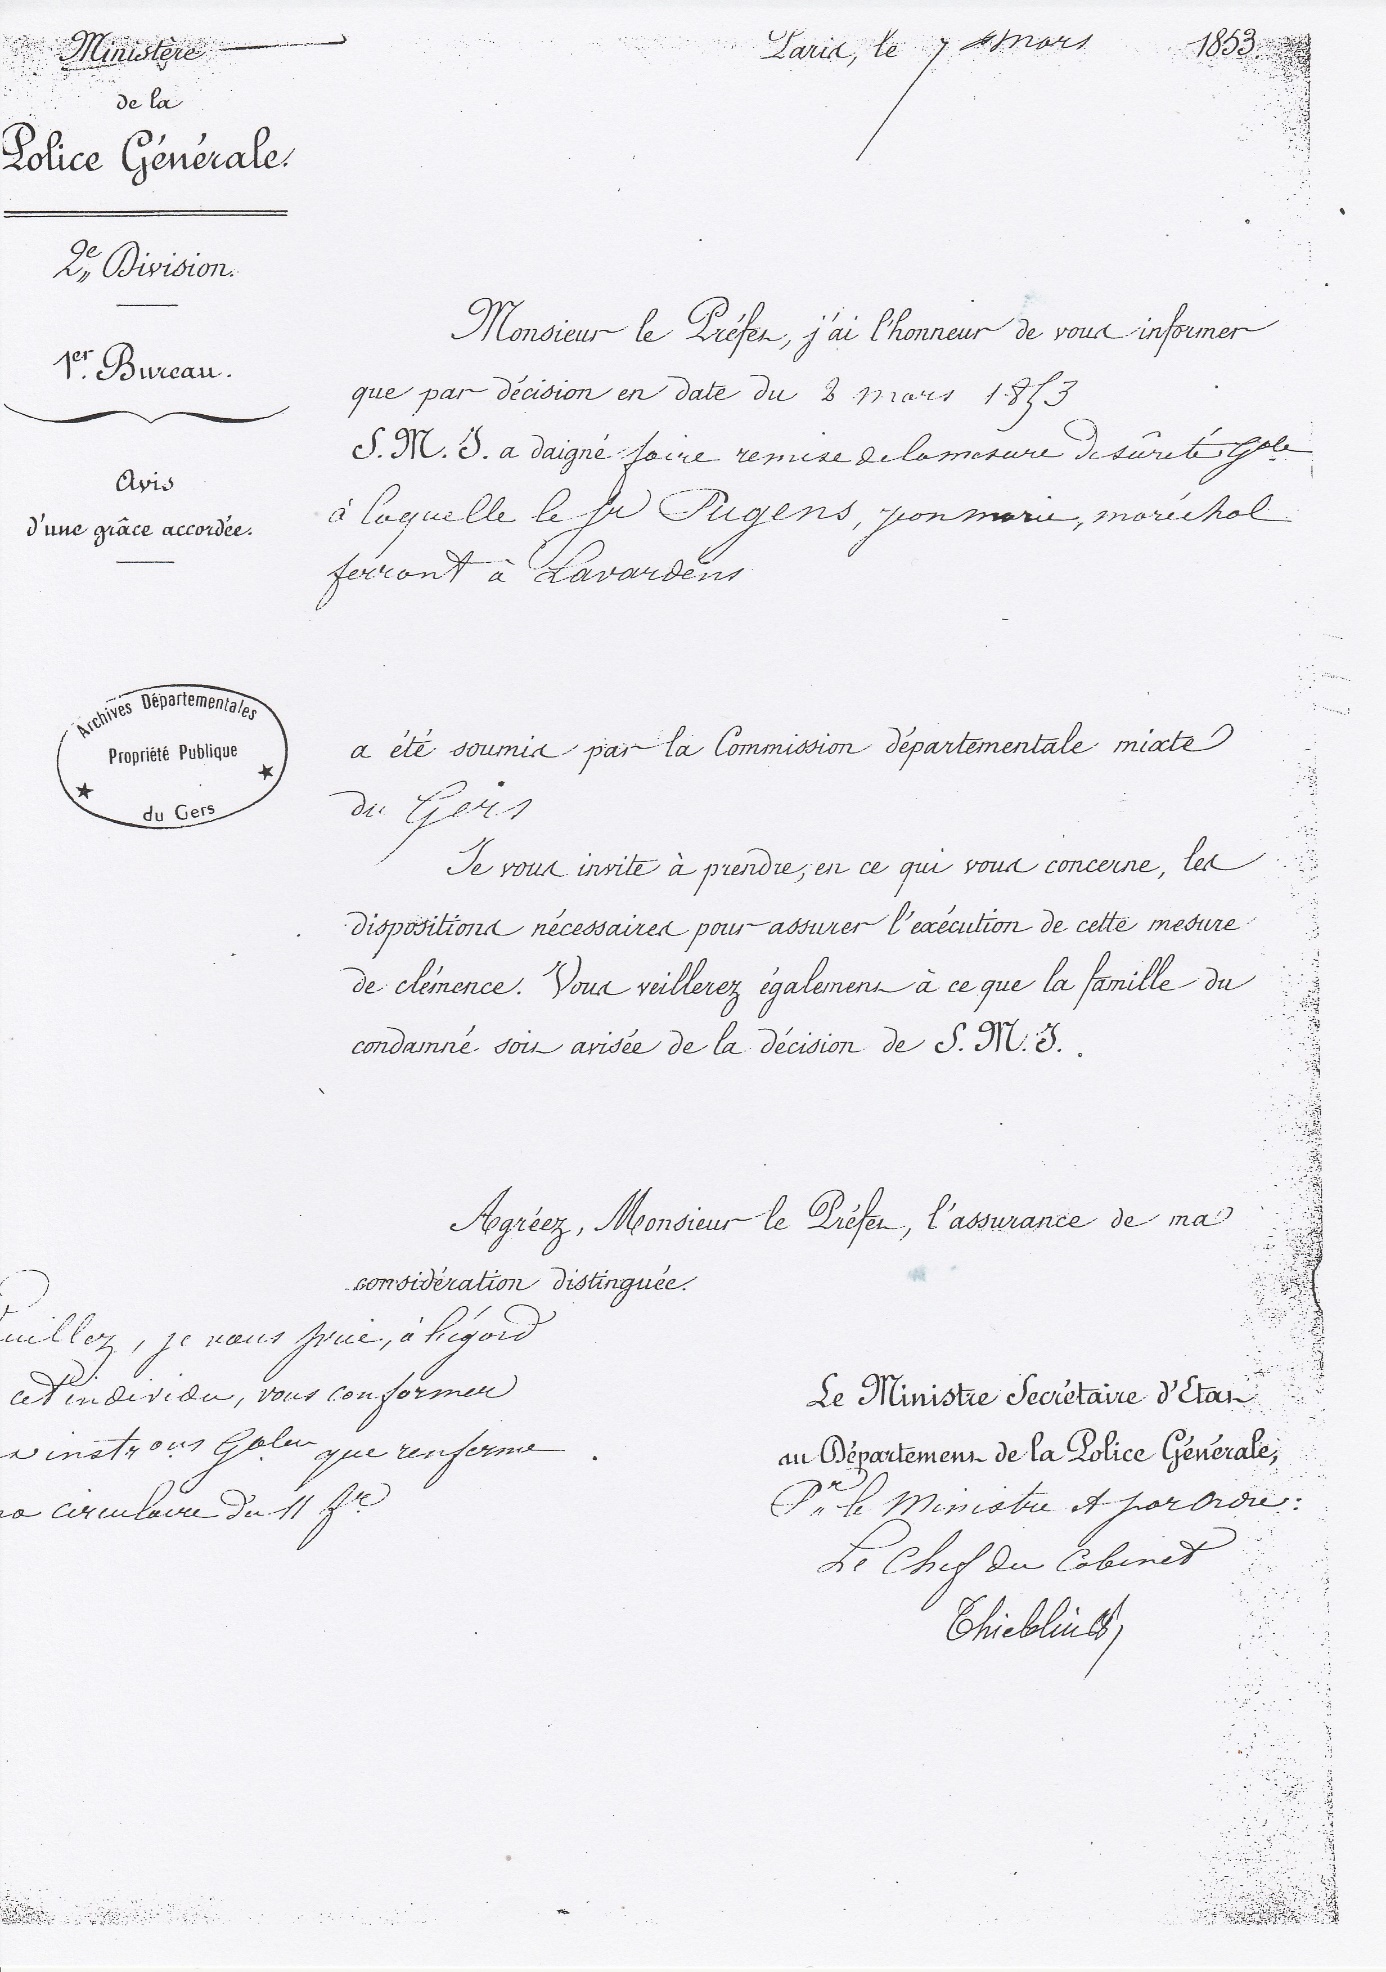 Ministère
de la
Police Générale.
2e Division.
1er. Bureau.
Avis
d'une grâce accordée.
Paris, le 7 mars 1853.
Monsieur le Préfet, j'ai l'honneur de vous informer
que par décision en date du 2 mars 1853
S. M. I. a daigné faire remise de la mesure de sûreté Gale
à laquelle le Sr Pugens, jean marie, maréchal
ferrant à Lavardens
a été soumis par la Commission départementale mixte
du Gers
Je vous invite à prendre, en ce qui vous concerne, les
dispositions nécessaires pour assurer l'exécution de cette mesure
de clémence. Vous veillerez également à ce que la famille du
condamné soit avisée de la décision de S. M. I.
Agréez, Monsieur le Préfet, l'assurance de ma
considération distinguée.
Archives Départementales
Propriété Publique
du Gers
euillez, je vous prie, à l'égard
cet individu, vous conformer
x instrons Gales que renferme
ma circulaire du 11 fr
Le Ministre Secrétaire d'Etat
au Département de la Police Générale,
Pr le Ministre et par ordre:
Le Chef du Cabinet